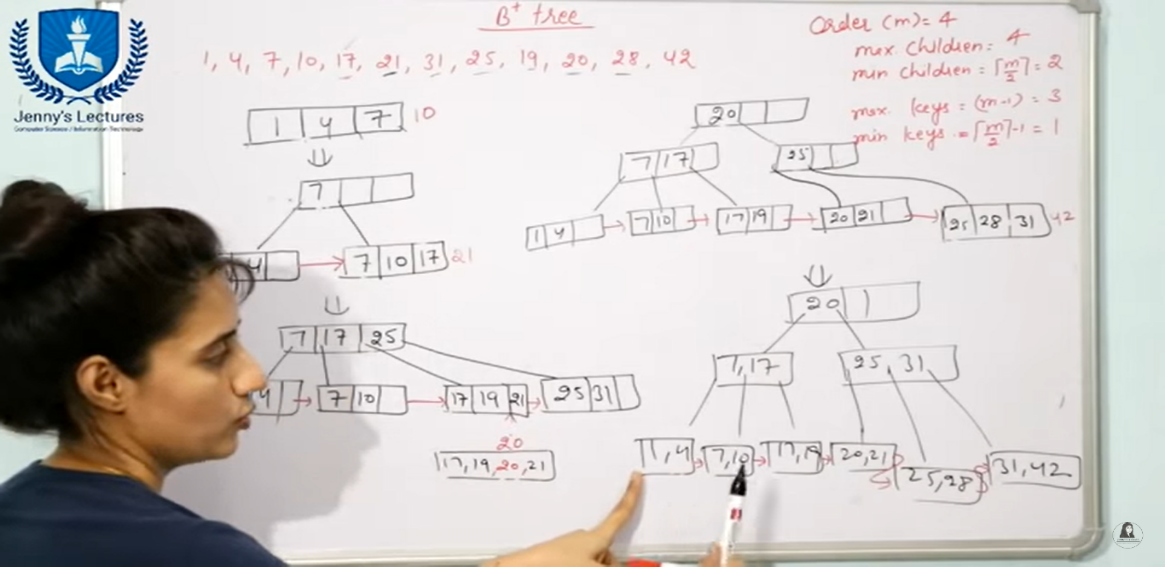 Jenny's Lectures
Computer Science / Information Technology
B+ tree
1, 4, 7, 10, 17, 21, 31, 25, 19, 20, 28, 42
Order (m) = 4
max. children = 4
min children = ⌈m/2⌉ = 2
max. keys = (m-1) = 3
min keys = ⌈m/2⌉-1 = 1
1 4 7 10
7
4 7 10 17 21
7 17 25
4 7 10 17 19 21 25 31
20
17, 19, 20, 21
20
7 17 25
1 4 7 10 17 19 20 21 25 28 31 42
20
7, 17 25, 31
1, 4 7, 10 17, 19 20, 21 25, 28 31, 42